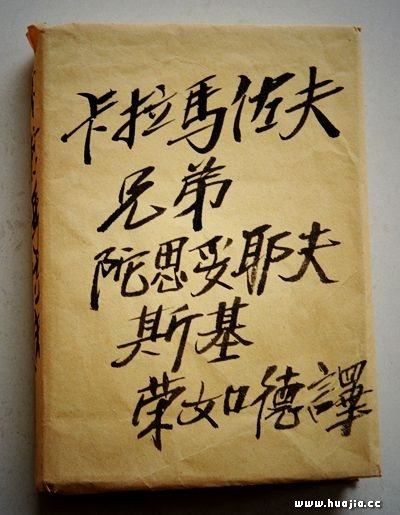 卡拉馬佐夫
兄弟
陀思妥耶夫
斯基
荣如德譯
www.huajia.cc